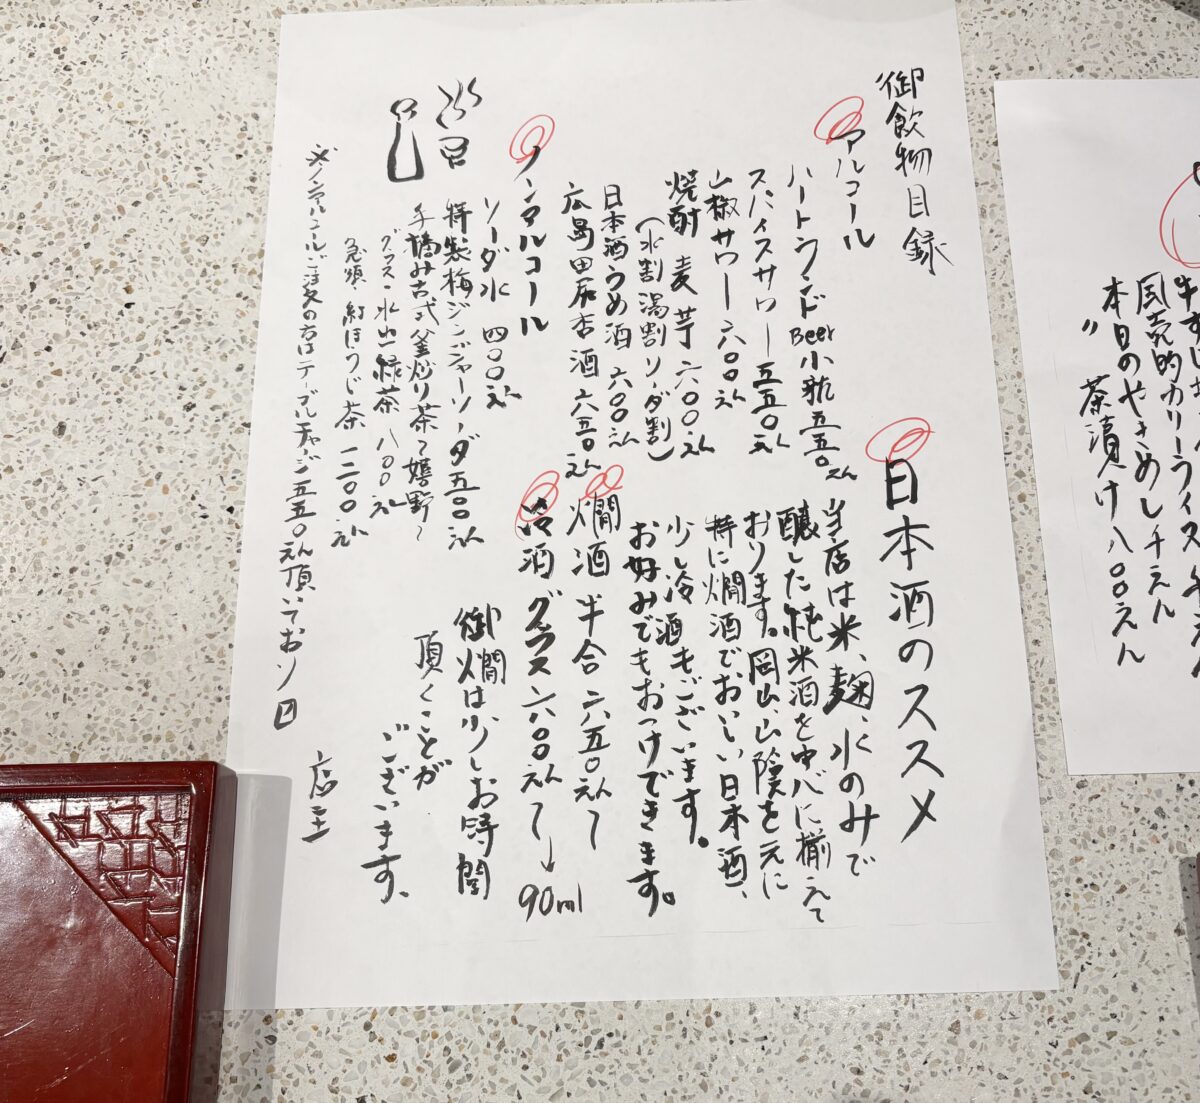 御飲物目録
アルコール
ハートランドBeer小瓶五五〇えん
スパイスサワー五五〇えん
山椒サワー六〇〇えん
焼酎 麦 芋 六〇〇えん
(水割 湯割 ソーダ割)
日本酒うめ酒 六〇〇えん
広島田尻杏酒 六五〇えん
ノンアルコール
ソーダ水 四〇〇えん
特製梅ジンジャーソーダ五〇〇えん
手摘み古式釜炒り茶〜嬉野〜
グラス・水出緑茶 八〇〇えん
急須 紅ほうじ茶 一二〇〇えん
※ノンアルコールご注文の方はテーブルチャージ五五〇えん頂いており〼
日本酒のススメ
当店は米、麹、水のみで
醸した純米酒を中心に揃えて
おります。岡山、山陰を元に
特に燗酒でおいしい日本酒、
少し冷酒もございます。
お好みでもおつけできます。
燗酒 半合 六五〇えん〜
冷酒 グラス六〇〇えん〜→90ml
御燗は少しお時間
頂くことが
ございます、
店主
風売的カリーライス
本日のやきめし千えん
〃 茶漬け八〇〇えん